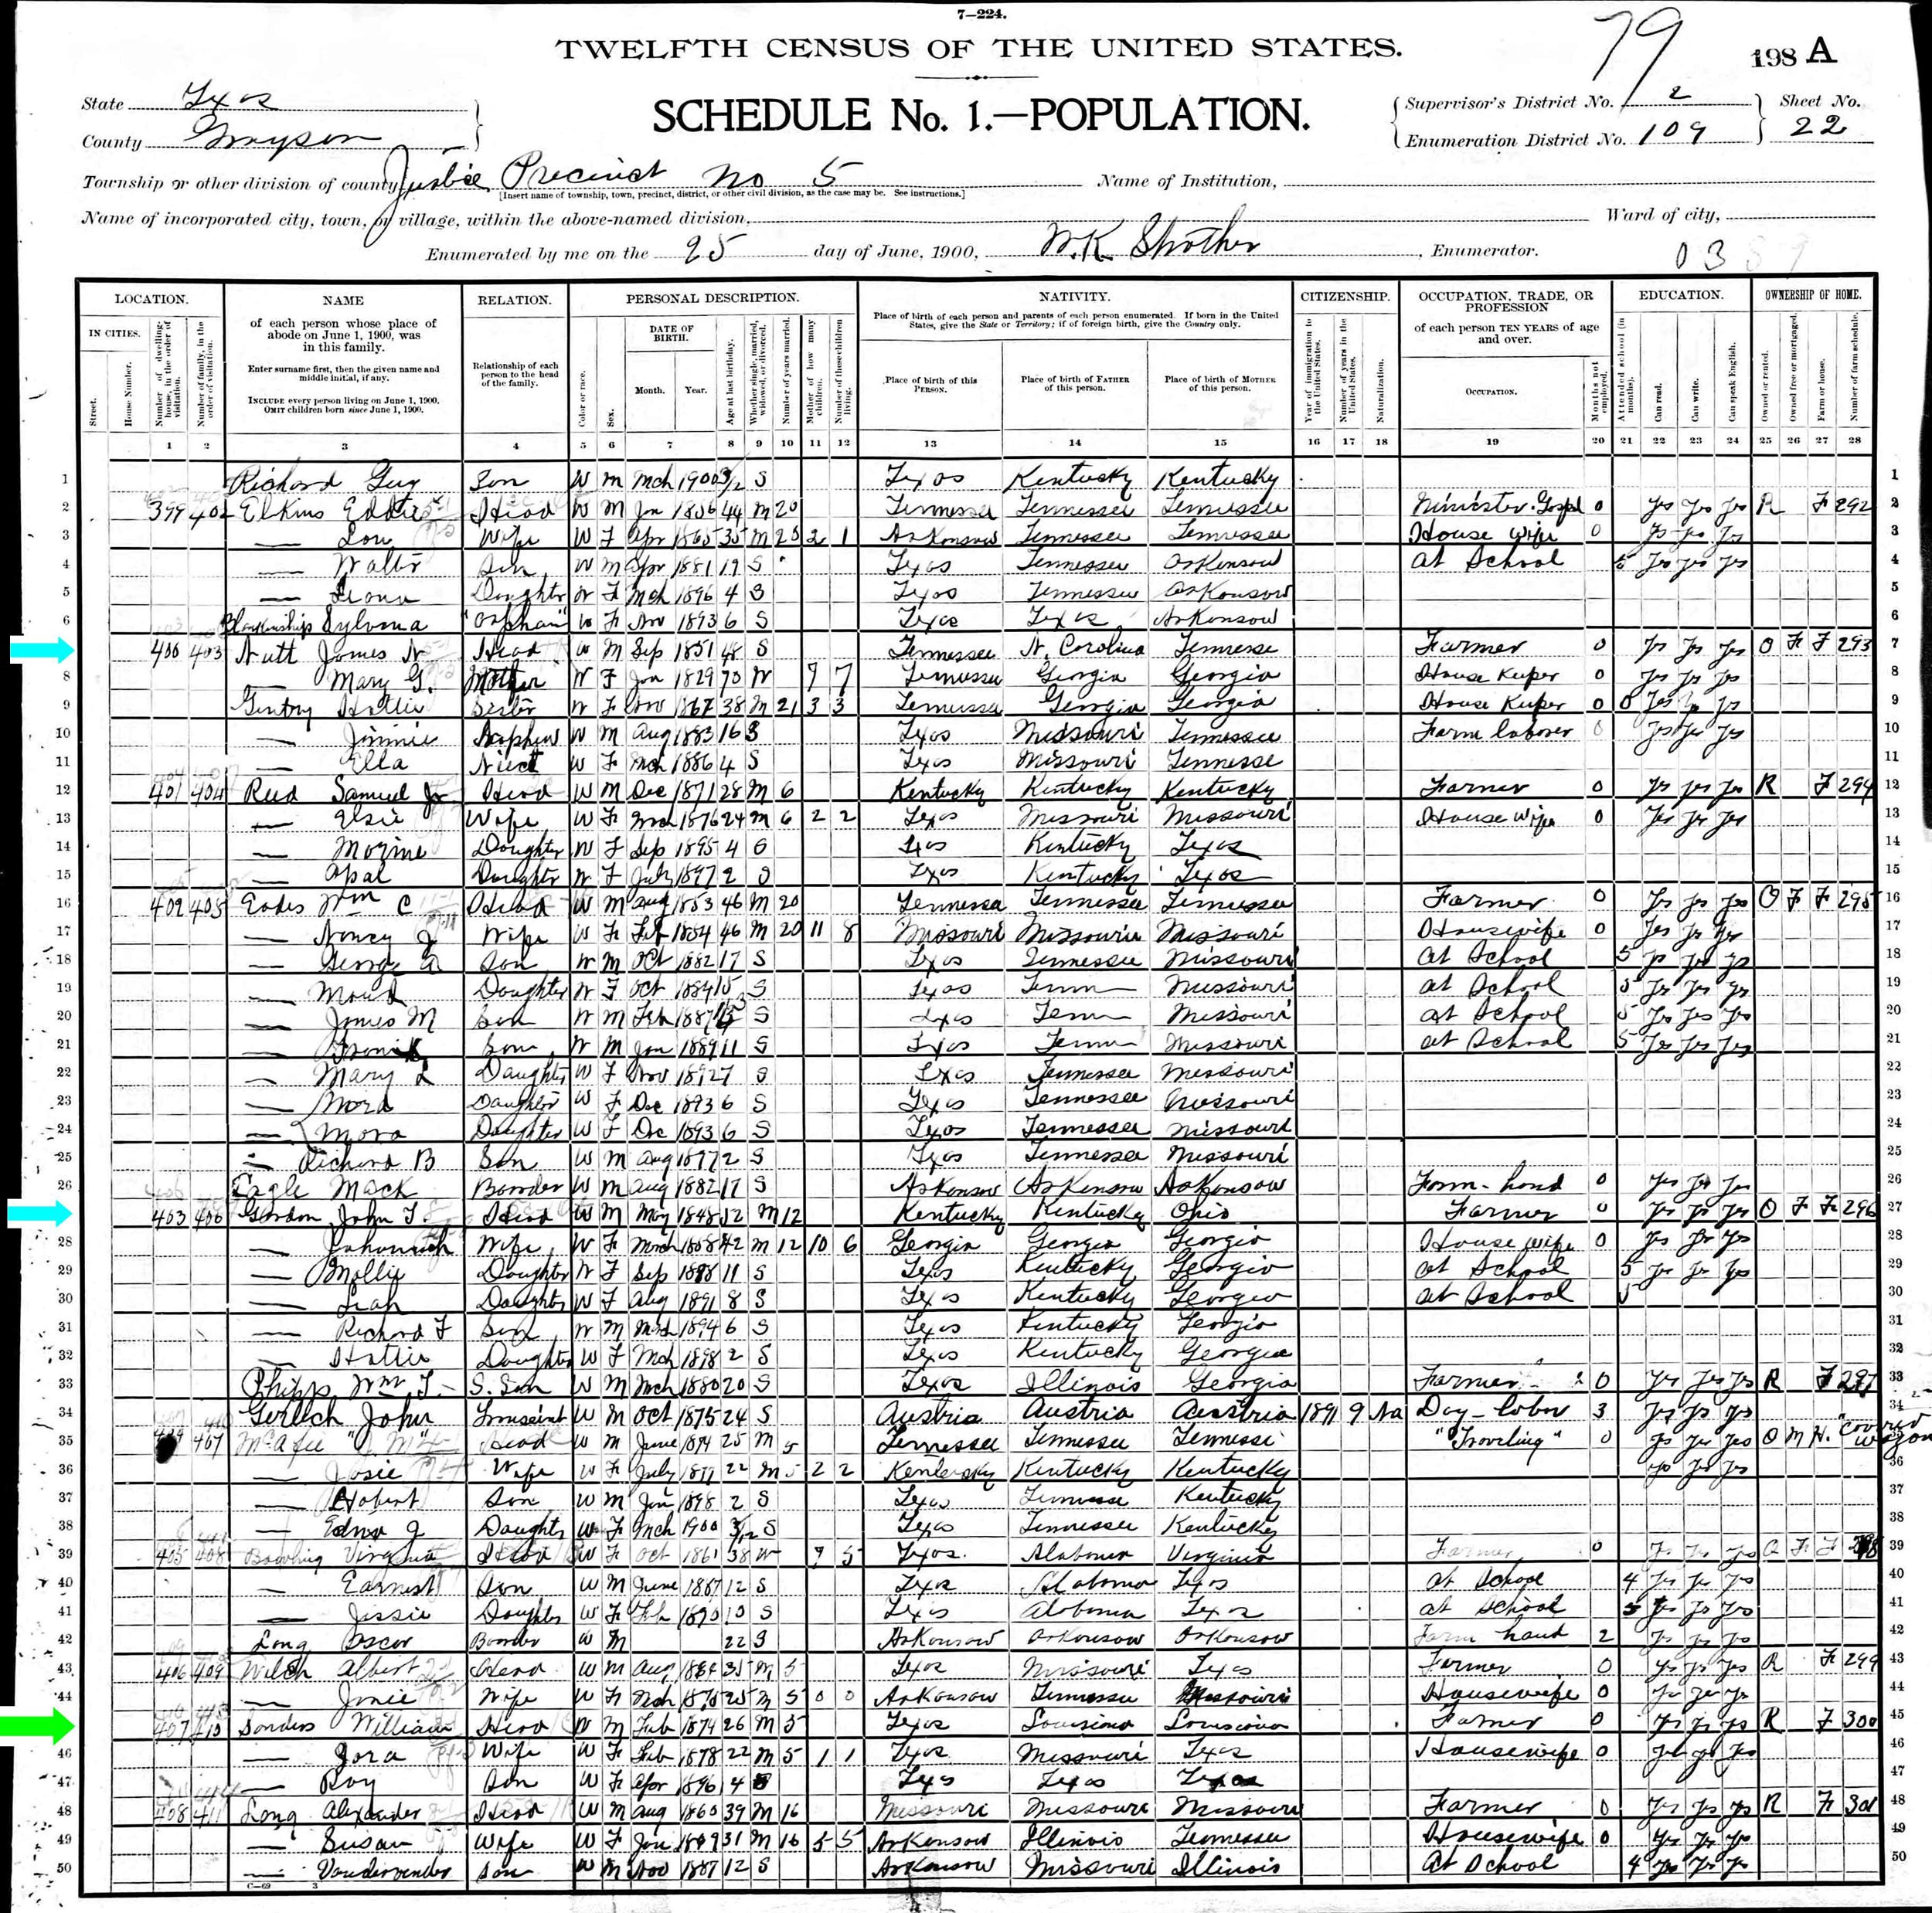 7—224.
TWELFTH CENSUS OF THE UNITED STATES.
79
198 A
State Texas
County Grayson
SCHEDULE No. 1.—POPULATION.
Supervisor's District No. 2
Enumeration District No. 109
Sheet No. 22
Township or other division of county Justice Precinct No 5
[Insert name of township, town, precinct, district, or other civil division, as the case may be. See instructions.]
Name of Institution,
Name of incorporated city, town, or village, within the above-named division,
Ward of city,
Enumerated by me on the 25 day of June, 1900, W.K. Strother, Enumerator.
LOCATION. NAME RELATION. PERSONAL DESCRIPTION. NATIVITY. CITIZENSHIP. OCCUPATION, TRADE, OR PROFESSION EDUCATION. OWNERSHIP OF HOME.
IN CITIES. Street. House Number. Number of dwelling-house, in the order of visitation. Number of family, in the order of visitation.
of each person whose place of abode on June 1, 1900, was in this family.
Enter surname first, then the given name and middle initial, if any.
INCLUDE every person living on June 1, 1900. OMIT children born since June 1, 1900.
Relationship of each person to the head of the family.
Color or race. Sex. DATE OF BIRTH. Month. Year. Age at last birthday. Whether single, married, widowed, or divorced. Number of years married. Mother of how many children. Number of these children living.
Place of birth of each person and parents of each person enumerated. If born in the United States, give the State or Territory; if of foreign birth, give the Country only.
Place of birth of this PERSON. Place of birth of FATHER of this person. Place of birth of MOTHER of this person.
Year of immigration to the United States. Number of years in the United States. Naturalization.
of each person TEN YEARS of age and over.
OCCUPATION. Months not employed.
Attended school (in months). Can read. Can write. Can speak English.
Owned or rented. Owned free or mortgaged. Farm or house. Number of farm schedule.
1 2 3 4 5 6 7 8 9 10 11 12 13 14 15 16 17 18 19 20 21 22 23 24 25 26 27 28
1 Richard Guy Son W M Mch 1900 3/12 S Texas Kentucky Kentucky 1
2 399 402 Elkins Head W M Jan 1856 44 M 20 Tennessee Tennessee Tennessee Minister Gospel 0 Yes Yes Yes R F 292 2
3 — Lou Wife W F Apr 1865 35 M 20 2 1 Arkansaw Tennessee Tennessee House Wife 0 Yes Yes Yes 3
4 — Walter Son W M Apr 1881 19 S Texas Tennessee Arkansaw At School 5 Yes Yes Yes 4
5 — Leona Daughter W F Mch 1896 4 S Texas Tennessee Arkansaw 5
6 Sylvania "Orphan" W F Nov 1893 6 S Texas Texas Arkansaw 6
7 400 403 Nutt James N Head W M Sep 1851 48 S Tennessee N. Carolina Tennessee Farmer 0 Yes Yes Yes O F F 293 7
8 — Mary G. Mother W F Jan 1829 70 W 7 7 Tennessee Georgia Georgia House Keeper 0 Yes Yes Yes 8
9 Gentry Hattie Sister W F Nov 1867 38 M 21 3 3 Tennessee Georgia Georgia House Keeper 0 0 Yes Yes 9
10 — Jimmie Nephew W M Aug 1883 16 S Texas Missouri Tennessee Farm laborer 0 Yes Yes Yes 10
11 — Ella Niece W F Mch 1886 4 S Texas Missouri Tennesse 11
12 401 404 Reed Samuel Jr Head W M Dec 1871 28 M 6 Kentucky Kentucky Kentucky Farmer 0 Yes Yes Yes R F 294 12
13 — Elsie Wife W F Mch 1876 24 M 6 2 2 Texas Missouri Missouri House Wife 0 Yes Yes Yes 13
14 — Daughter W F Sep 1895 4 S Texas Kentucky Texas 14
15 — Opal Daughter W F July 1897 2 S Texas Kentucky Texas 15
16 402 405 Eades Wm C Head W M Aug 1853 46 M 20 Tennessee Tennessee Tennessee Farmer 0 Yes Yes Yes O F F 295 16
17 — Nancy J Wife W F Feb 1854 46 M 20 11 8 Missouri Missouri Missouri Housewife 0 Yes Yes Yes 17
18 — George A Son W M Oct 1882 17 S Texas Tennessee Missouri At School 5 Yes Yes Yes 18
19 — Maud Daughter W F Oct 1884 15 S Texas Tenn Missouri at School 5 Yes Yes Yes 19
20 — James M Son W M Feb 1887 13 S Texas Tenn Missouri at School 5 Yes Yes Yes 20
21 — Frank Son W M Jan 1889 11 S Texas Tenn Missouri at School 5 Yes Yes Yes 21
22 — Mary L Daughter W F Nov 1892 7 S Texas Tennessee Missouri 22
23 — Daughter W F Dec 1893 6 S Texas Tennessee Missouri 23
24 — Daughter W F Dec 1893 6 S Texas Tennessee Missouri 24
25 — Richard B Son W M Aug 1897 2 S Texas Tennessee Missouri 25
26 Cagle Mack Boarder W M Aug 1882 17 S Arkansaw Arkansaw Arkansaw Farm-hand 0 Yes Yes Yes 26
27 403 406 Gordon John T. Head W M May 1848 52 M 12 Kentucky Kentucky Ohio Farmer 0 Yes Yes Yes O F F 296 27
28 — Wife W F March 1858 42 M 12 10 6 Georgia Georgia Georgia House wife 0 Yes Yes Yes 28
29 — Mollie Daughter W F Sep 1888 11 S Texas Kentucky Georgia at School 5 Yes Yes Yes 29
30 — Leah Daughter W F Aug 1891 8 S Texas Kentucky Georgia at School 5 30
31 — Richard F Son W M Mch 1894 6 S Texas Kentucky Georgia 31
32 — Hattie Daughter W F Mch 1898 2 S Texas Kentucky Georgia 32
33 Phipps Wm T. S. Son W M Mch 1880 20 S Texas Illinois Georgia Farmer 0 Yes Yes Yes R F 297 33
34 Gerlich John W M Oct 1875 24 S Austria Austria Austria 1891 9 Na Day-labor 3 Yes Yes Yes 34
35 407 McAfee "J M" Head W M June 1874 25 M 5 Tennessee Tennessee Tennessee "Traveling" 0 Yes Yes Yes O M H. "Covered wagon 35
36 — Josie Wife W F July 1877 22 M 5 2 2 Kentucky Kentucky Kentucky Yes Yes Yes 36
37 — Hobert Son W M Jan 1898 2 S Texas Tennessee Kentucky 37
38 — Edna J Daughter W F Mch 1900 3/12 S Texas Tennessee Kentucky 38
39 405 408 Bowling Virginia Head W F Oct 1861 38 W 7 5 Texas Alabama Virginia Farmer 0 Yes Yes Yes O F F 298 39
40 — Earnest Son W M June 1887 12 S Texas Alabama Texas at School 4 Yes Yes Yes 40
41 — Jessie Daughter W F Feb 1890 10 S Texas Alabama Texas at School 5 Yes Yes Yes 41
42 Long Oscar Boarder W M 22 S Arkansaw Arkansaw Arkansaw Farm hand 2 Yes Yes Yes 42
43 406 409 Welch Albert Head W M Aug 1864 35 M 5 Texas Missouri Texas Farmer 0 Yes Yes Yes R F 299 43
44 — Janie Wife W F Mch 1875 25 M 5 0 0 Arkansaw Tennessee Missouri Housewife 0 Yes Yes Yes 44
45 407 410 Sanders William Head W M Feb 1874 26 M 5 Texas Louisiana Louisiana Farmer 0 Yes Yes Yes R F 300 45
46 — Zora Wife W F Feb 1878 22 M 5 1 1 Texas Missouri Texas Housewife 0 Yes Yes Yes 46
47 — Roy Son W F Apr 1896 4 S Texas Texas Texas 47
48 408 411 Long Alexander Head W M Aug 1860 39 M 16 Missouri Missouri Missouri Farmer 0 Yes Yes Yes R F 301 48
49 — Susan Wife W F Jan 1869 31 M 16 5 5 Arkansaw Illinois Tennessee Housewife 0 Yes Yes Yes 49
50 — Son W M Nov 1887 12 S Arkansaw Missouri Illinois At School 4 Yes Yes Yes 50
C—69 3